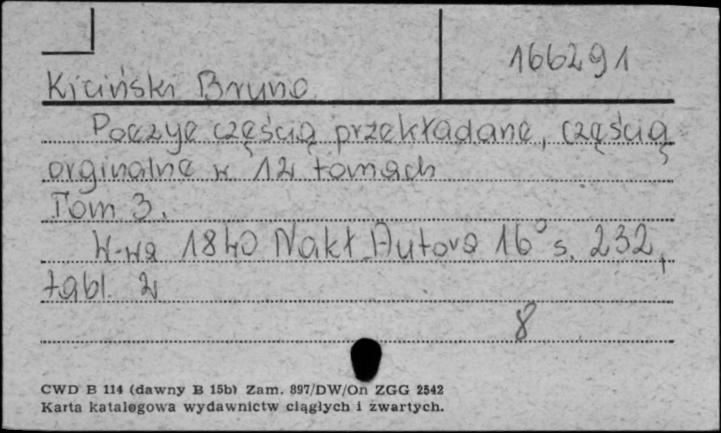 166291
Kiciński Bruno
Poezye częścią przekładane, częścią
orginalne w 12 tomach
Tom 3.
W-wa 1840 Nakł. Autora 16° s. 232,
tabl. 2
8
CWD B 114 (dawny B 15b) Zam. 897/DW/On ZGG 2542
Karta katalogowa wydawnictw ciągłych i zwartych.